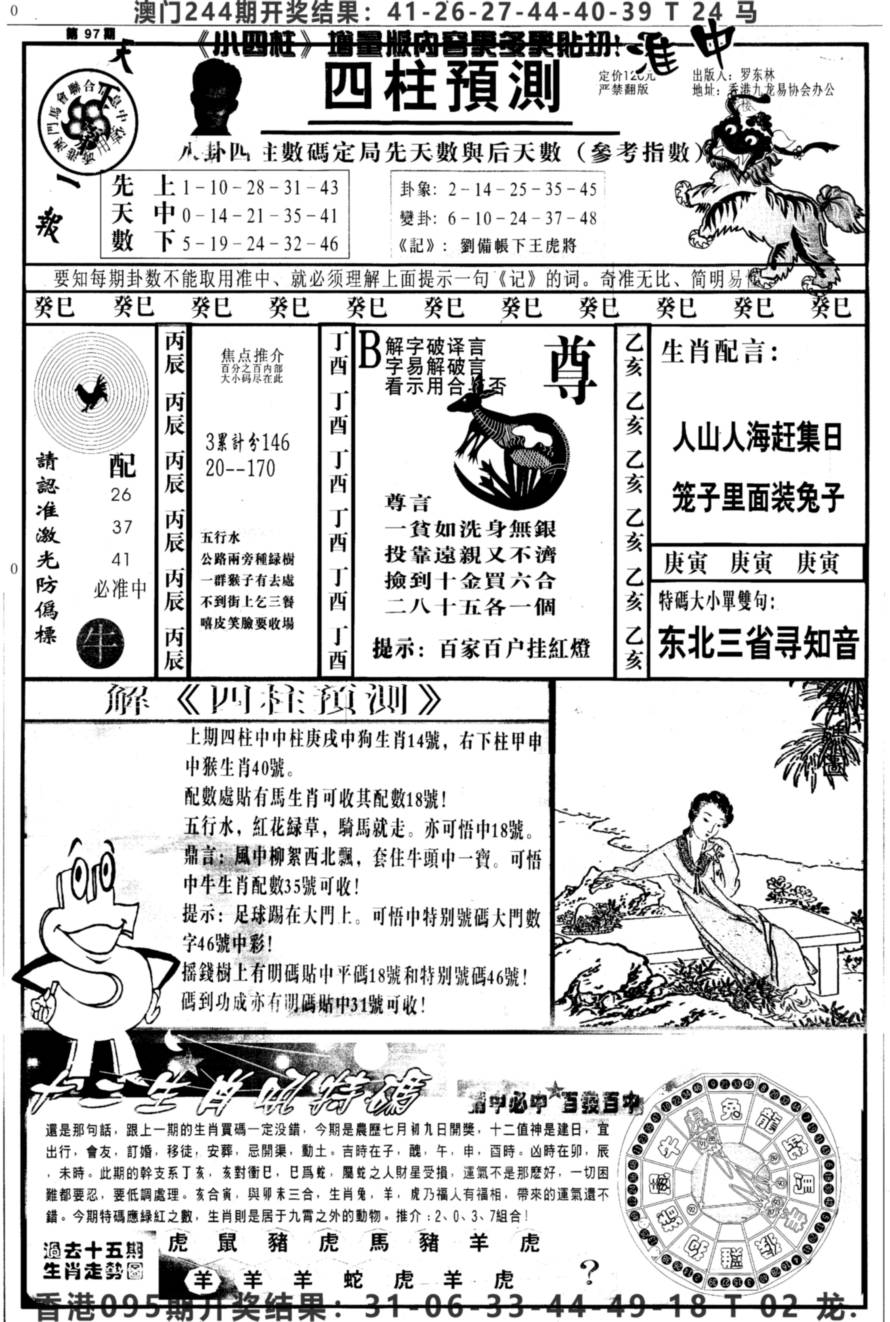 澳门244期开奖结果：41-26-27-44-40-39 T 24 马
第97期
《小四柱》增量版內容更多更貼切!
准中
四柱預測
定价120元
严禁翻版
出版人：罗东林
地址：香港九龙易协会办公楼
天
一
報
八卦四柱數碼定局先天數與后天數（參考指數）
先天數
上 1-10-28-31-43
中 0-14-21-35-41
下 5-19-24-32-46
卦象: 2-14-25-35-45
變卦: 6-10-24-37-48
《記》: 劉備帳下王虎將
要知每期卦数不能取用准中、就必须理解上面提示一句《记》的词。奇准无比、简明易
癸巳 癸巳 癸巳 癸巳 癸巳 癸巳 癸巳 癸巳 癸巳 癸巳 癸巳
請認准激光防僞標
配
26
37
41
必准中
牛
丙辰 丙辰 丙辰 丙辰 丙辰 丙辰
焦点推介
百分之百内部
大小码尽在此
3累計兮146
20--170
五行水
公路兩旁種緑樹
一群猴子有去處
不到街上乞三餐
嘻皮笑臉要收場
丁酉 丁酉 丁酉 丁酉 丁酉 丁酉
B
解字破译言
字易解破言
看示用合是否
尊
尊言
一貧如洗身無銀
投靠遠親又不濟
撿到十金買六合
二八十五各一個
提示: 百家百户挂紅燈
乙亥 乙亥 乙亥 乙亥 乙亥 乙亥
生肖配言:
人山人海赶集日
笼子里面装兔子
庚寅 庚寅 庚寅
特碼大小單雙句:
东北三省寻知音
解《四柱預測》
上期四柱中中柱庚戌中狗生肖14號，右下柱甲申
中猴生肖40號。
配數處貼有馬生肖可收其配數18號!
五行水，紅花緑草，騎馬就走。亦可悟中18號。
鼎言: 風中柳絮西北飄，套住牛頭中一寶。可悟
中牛生肖配數35號可收!
提示: 足球踢在大門上。可悟中特别號碼大門數
字46號中彩!
摇錢樹上有明碼貼中平碼18號和特别號碼46號!
碼到功成亦有明碼貼中31號可收!
猜中必中 百發百中
還是那句話，跟上一期的生肖買碼一定没錯，今期是農歷七月初九日開獎，十二值神是建日，宜
出行，會友，訂婚，移徒，安葬，忌開渠，動土。吉時在子，醜，午，申，酉時。凶時在卯，辰
，未時。此期的幹支系丁亥，亥對衝巳，巳爲蛇，屬蛇之人財星受損，運氣不是那麼好，一切困
難都要忍，要低調處理。亥合寅，與卯未三合，生肖兔，羊，虎乃福人有福相，帶來的運氣還不
錯。今期特碼應緑紅之數，生肖則是居于九霄之外的動物。推介:2、0、3、7組合!
過去十五期
生肖走勢圖
虎 鼠 豬 虎 馬 豬 羊 虎
羊 羊 羊 蛇 虎 羊 虎 ?
香港095期开奖结果：31-06-33-44-49-18 T 02 龙.